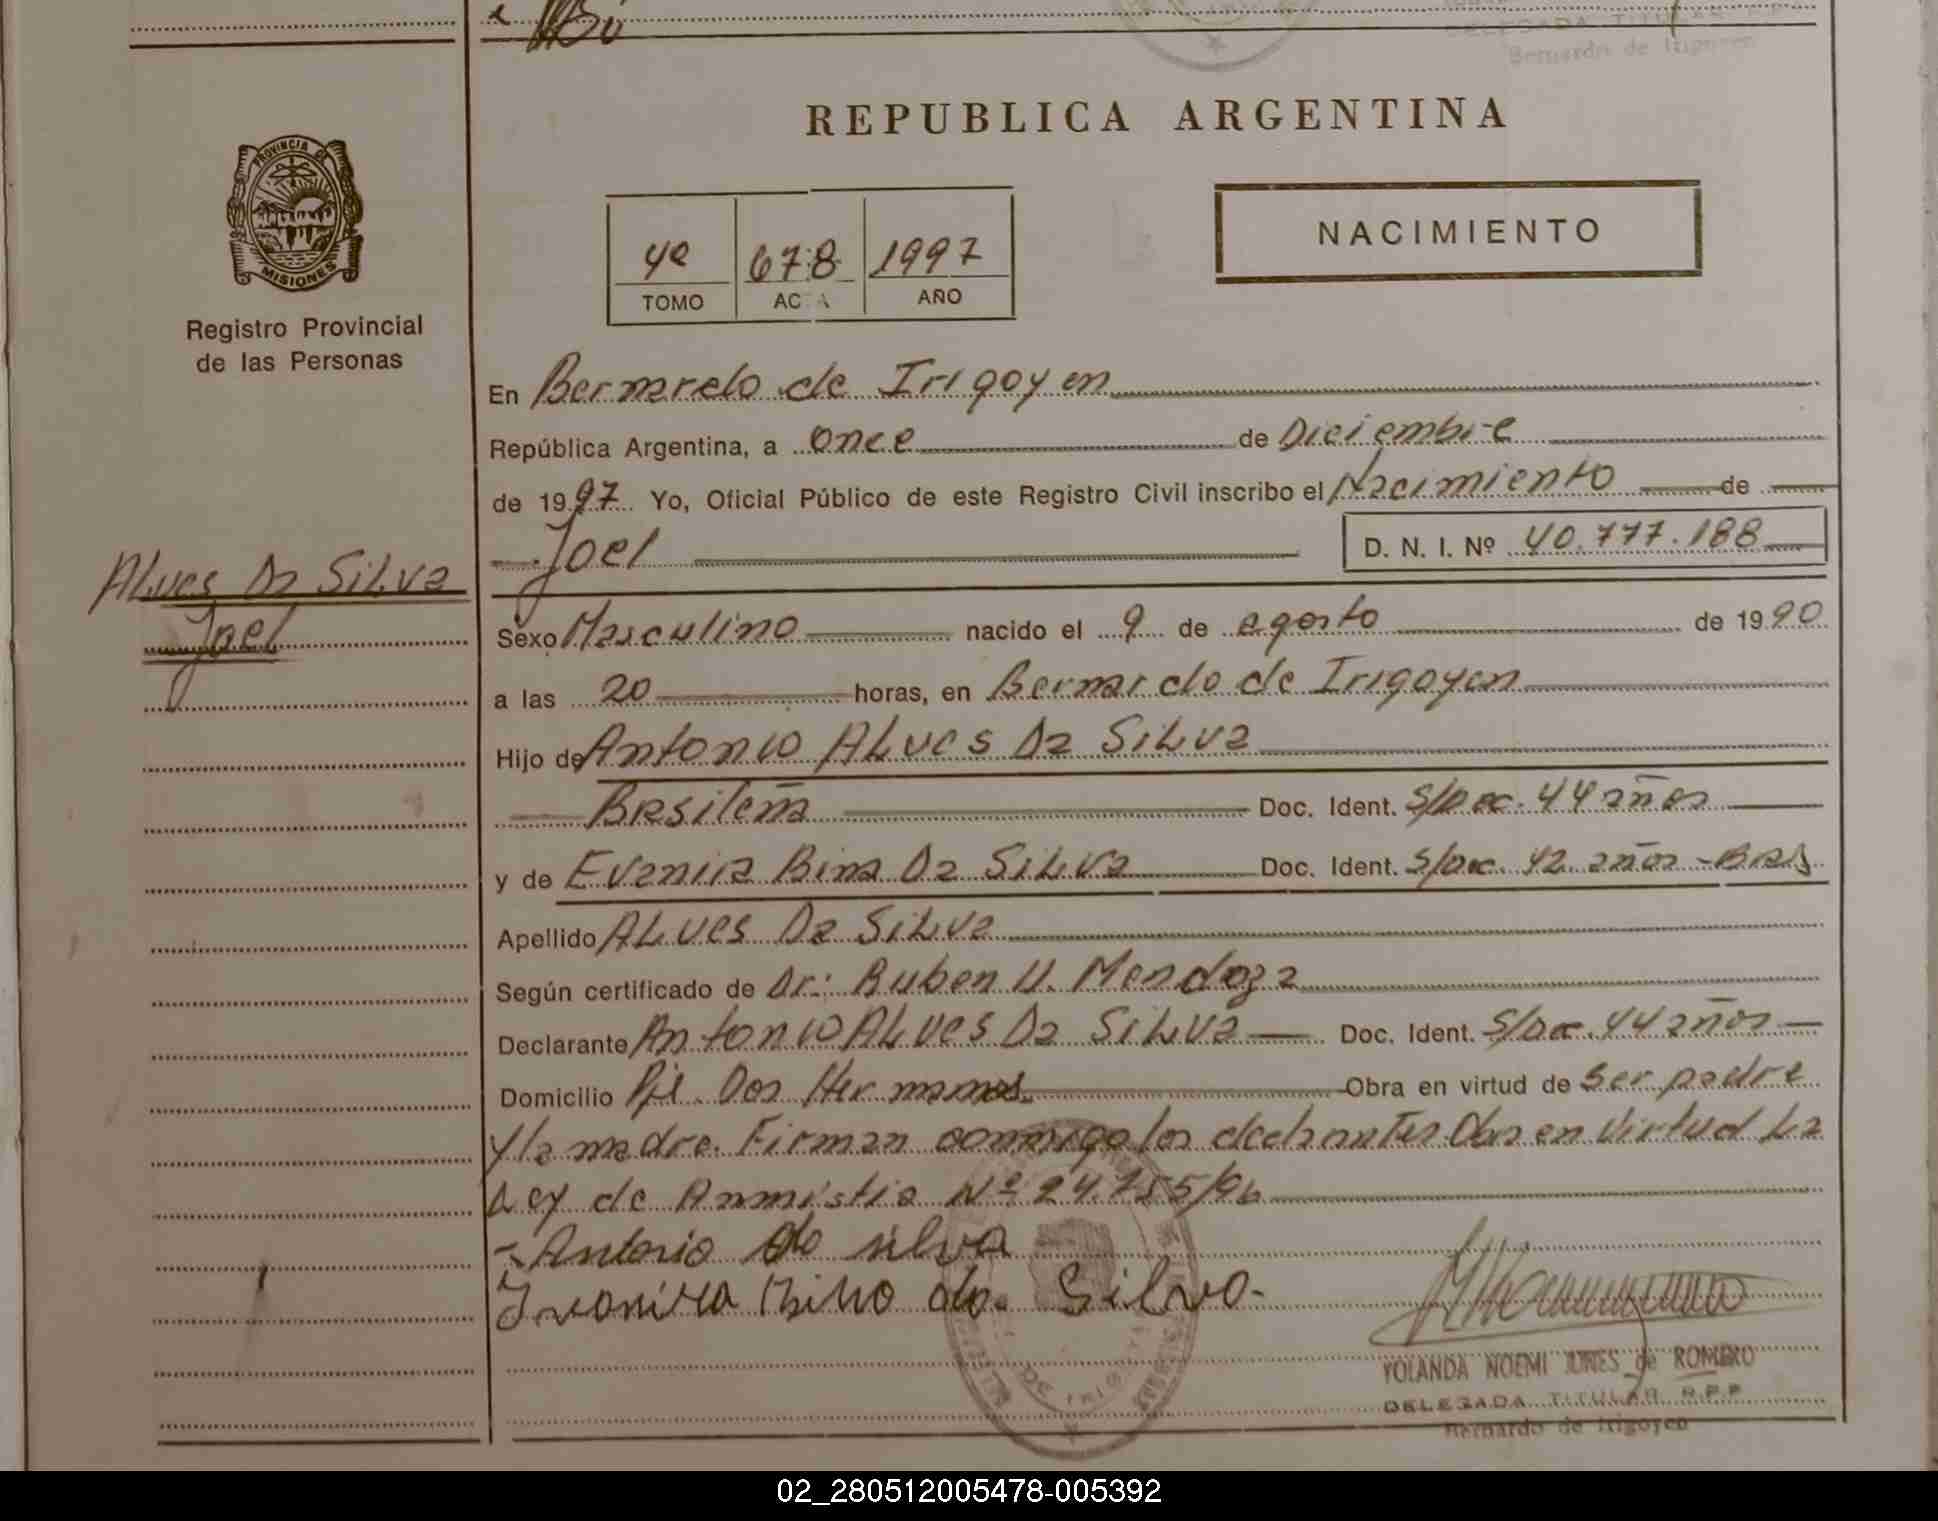 DELEGADA TITULAR R.P.P.
Bernardo de Irigoyen
REPUBLICA ARGENTINA
PROVINCIA DE
MISIONES
Registro Provincial
de las Personas
4º 678 1997
TOMO ACTA AÑO
NACIMIENTO
En Bernardo de Irigoyen
República Argentina, a once de Diciembre
de 1997 Yo, Oficial Público de este Registro Civil inscribo el Nacimiento de
Joel D. N. I. Nº 40.777.188
Alves Da Silva
Joel
Sexo Masculino nacido el 9 de agosto de 1990
a las 20 horas, en Bernardo de Irigoyen
Hijo de Antonio Alves Da Silva
Brasileña Doc. Ident. S/Doc. 44 años
y de Evanira Bina Da Silva Doc. Ident. S/Doc. 42 años - Bras
Apellido Alves Da Silva
Según certificado de Dr: Ruben U. Mendoza
Declarante Antonio Alves Da Silva Doc. Ident. S/Doc. 44 años
Domicilio Pje. Dos Hermanas Obra en virtud de ser padre
y la madre. Firman conmigo los declarantes Obra en Virtud La
Ley de Amnistia Nº 24.755/96
- Antonio da silva
Ivanira Bino da Silva-
YOLANDA NOEMI JUNES de ROMERO
DELEGADA TITULAR R.P.P.
Bernardo de Irigoyen
02_280512005478-005392